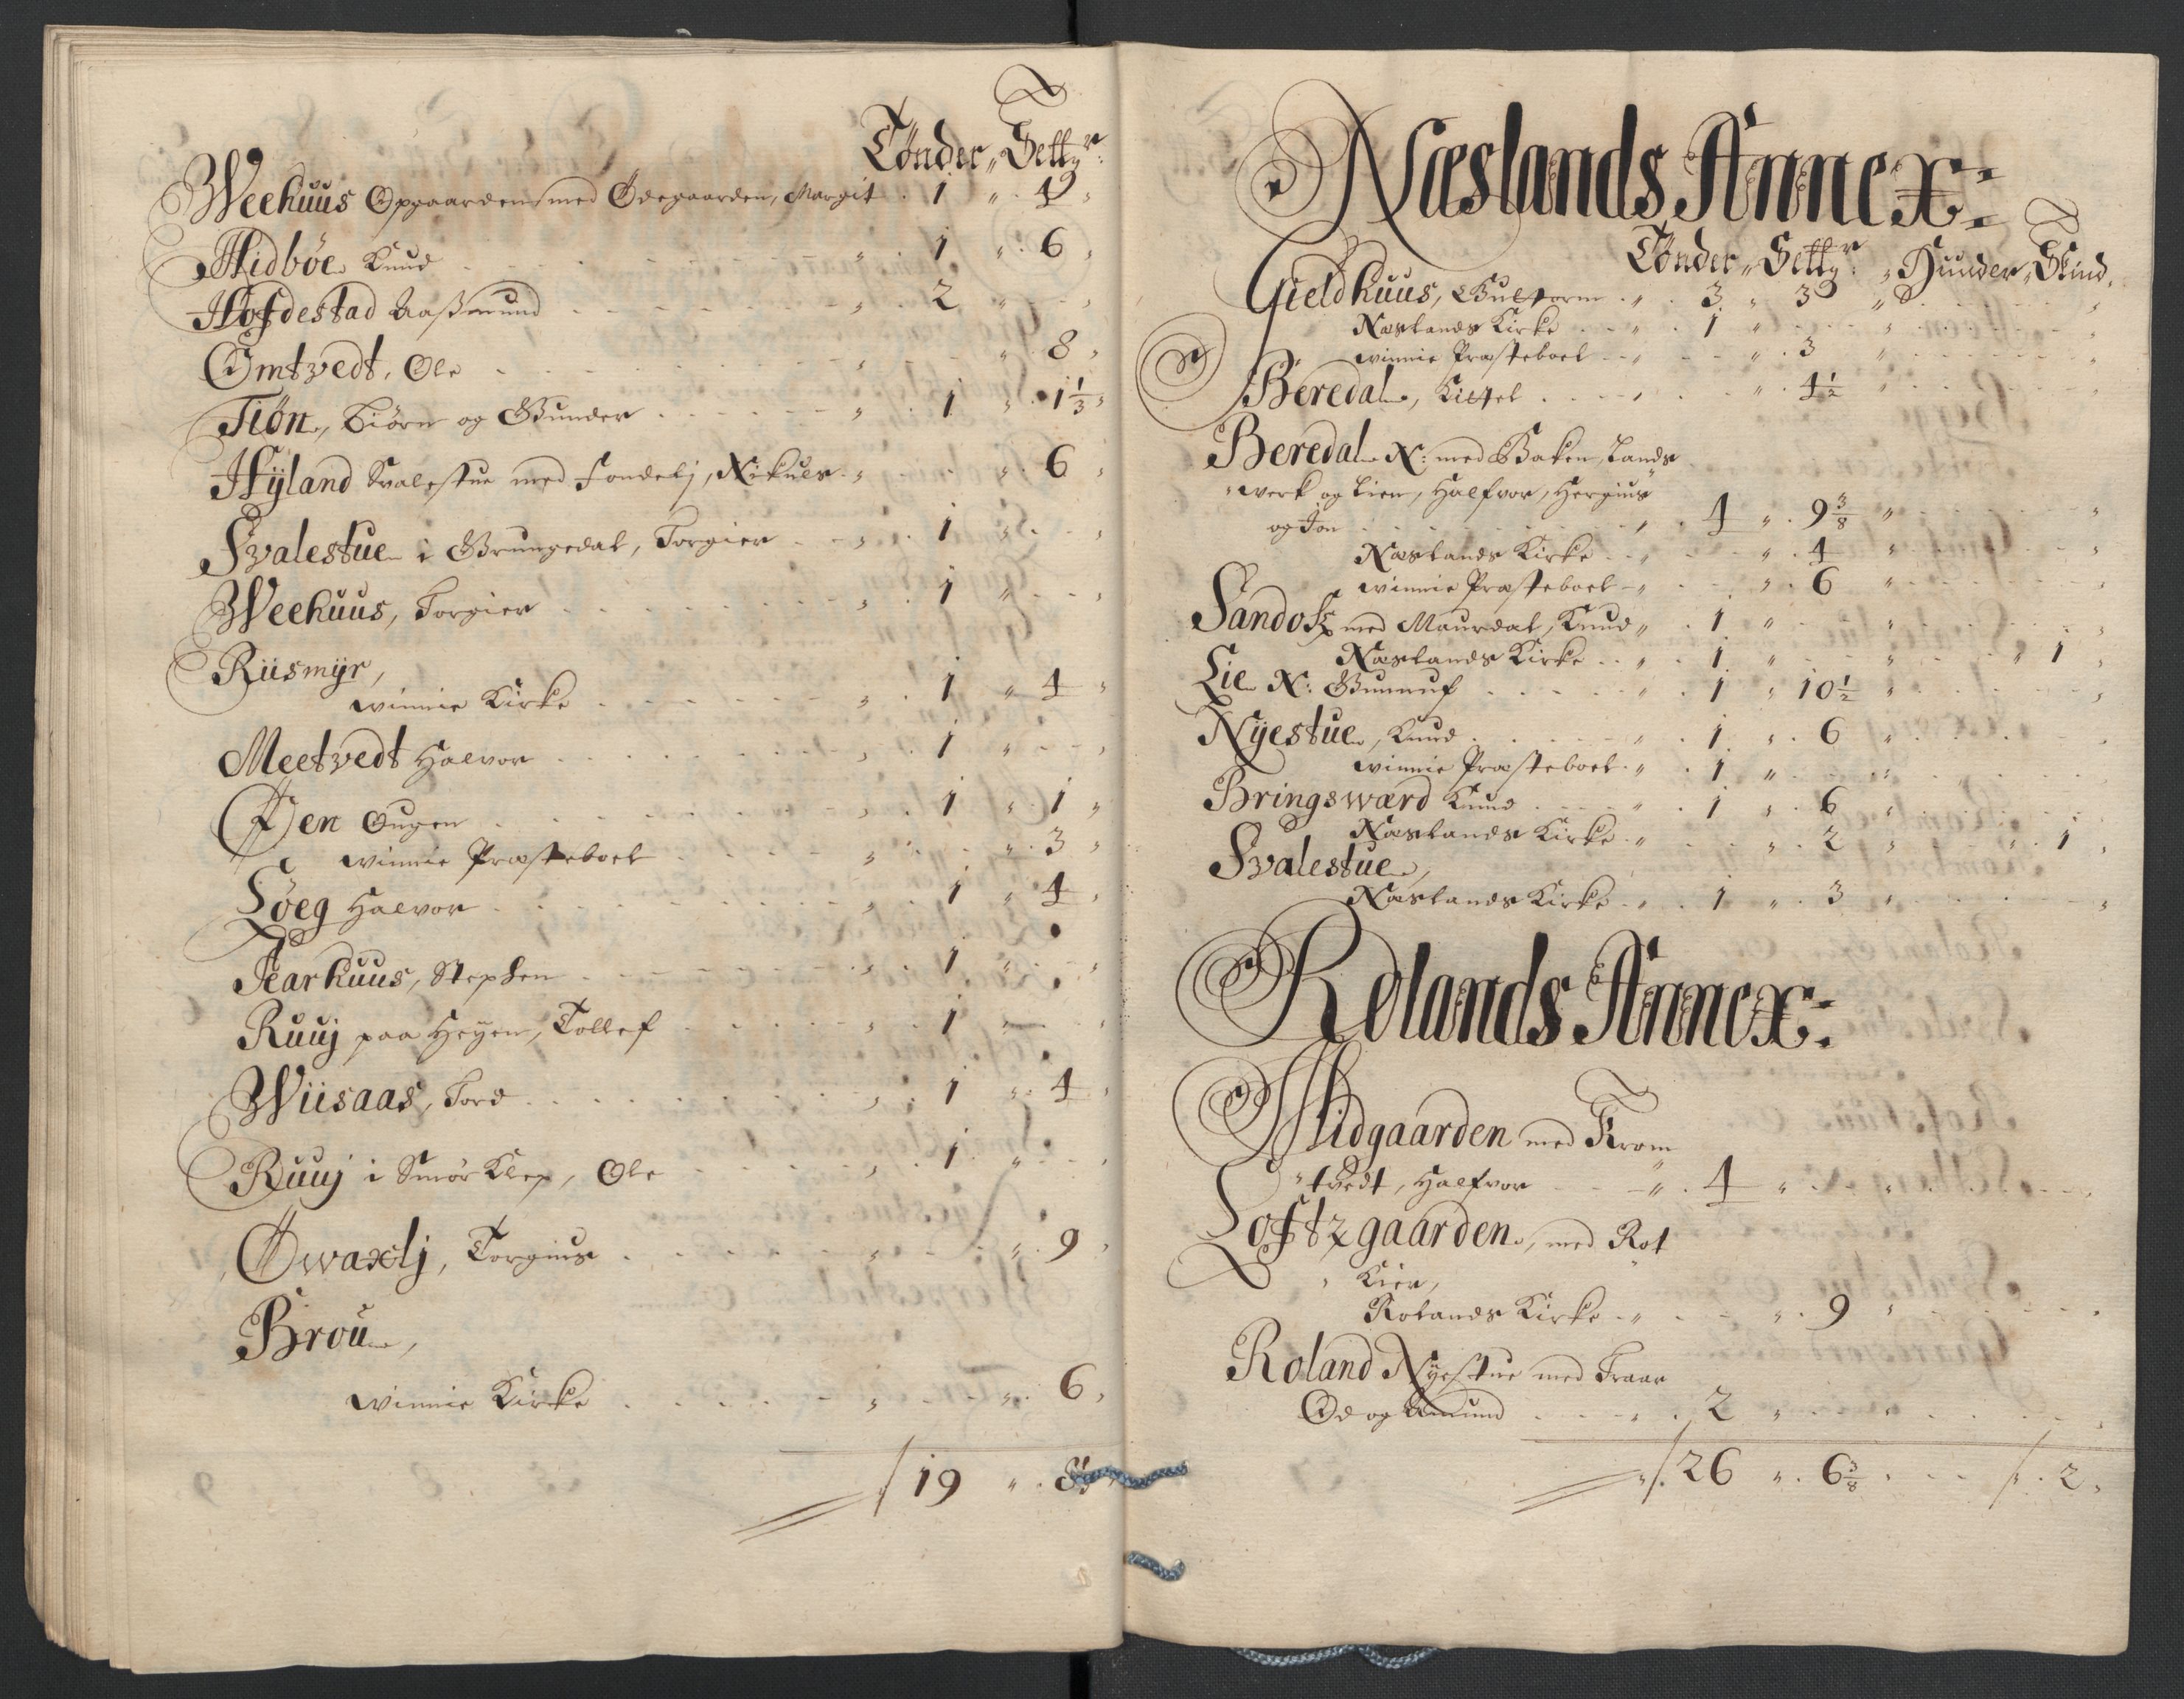 Tønder „ Settgr:
Weehuus Opgaarden med Ødegaarden, Margit . 1 „ . 4 „
Midbøe Knud „ . 1 „ . 6 „
Hofdestad Aaßmund „ . 2 „
Omtvedt, Ole „ „ . 8 „
Tiøn, Biørn og Gunder „ . 1 „ . 1 1/3 „
Hÿland Svalestue med Fondelj, Nikuls „ „ . 6 „
Svalestue i Grungedal, Torgier „ . 1 „
Weehuus, Torgier „ . 1 „
Riismÿr,
winnie Kirke „ . 1 „ 4 „
Meetvedt Halvor „ . 1 „
Øen Ougen „ . 1 „ . 1 „
winnie Præsteboel „ „ . 3 „
Løeg Halvor „ . 1 „ 4 „
Aarhuus, Stephen „ . 1 „
Ruuj paa Heÿen, Tollef „ . 1 „
Wiisaas, Tord „ . 1 „ . 4 „
Ruuj i Smør Klep, Ole „ . 1 „
Øwaxlj, Torgius „ „ . 9 „
Brou,
winnie Kirke „ „ . 6 „
19 „ .
Næslands Annex:
Tønder „ Settgr: „ Huuder „ Skind,
Gieldhuus, Gultorm „ . 3 „ 3 „
Næslands Kirke „ . 1 „
winnie Præsteboel „ „ . 3 „
Beredal, Kittel „ „ . 4 1/2 „
Beredal N: med Baken, Lands
„ werk og Lien, Halfvor, Hergius
og Jon „ . 4 „ . 9 3/8 „
Næslands Kirke „ „ . 4 „
winnie Præsteboel „ „ . 6 „
Sandok med Maurdal, Knud „ . 1 „
Næslands Kirke „ . 1 „ „ 1 „
Lie N: Gunnuf „ . 1 „ 10 1/2 „
Nÿestue, Knud „ . 1 „ . 6 „
winnie Præsteboel „ . 1 „
Bringsværd Knud „ . 1 „ . 6 „
Næslands Kirke „ „ . 2 „ „ . 1 „
Svalestue,
Næslands Kirke „ . 1 „ . 3 „
Rolands Annex:
Midgaarden med Krom
„ tvedt, Halfvor „ . 4 „
Loftzgaarden, med Rot
„ Kier,
Rolands Kirke „ „ . 9 „
Roland Nÿestue med Traar
Od og Amund „ . 2 „
26 „ . 6 3/8 „ . 2 „